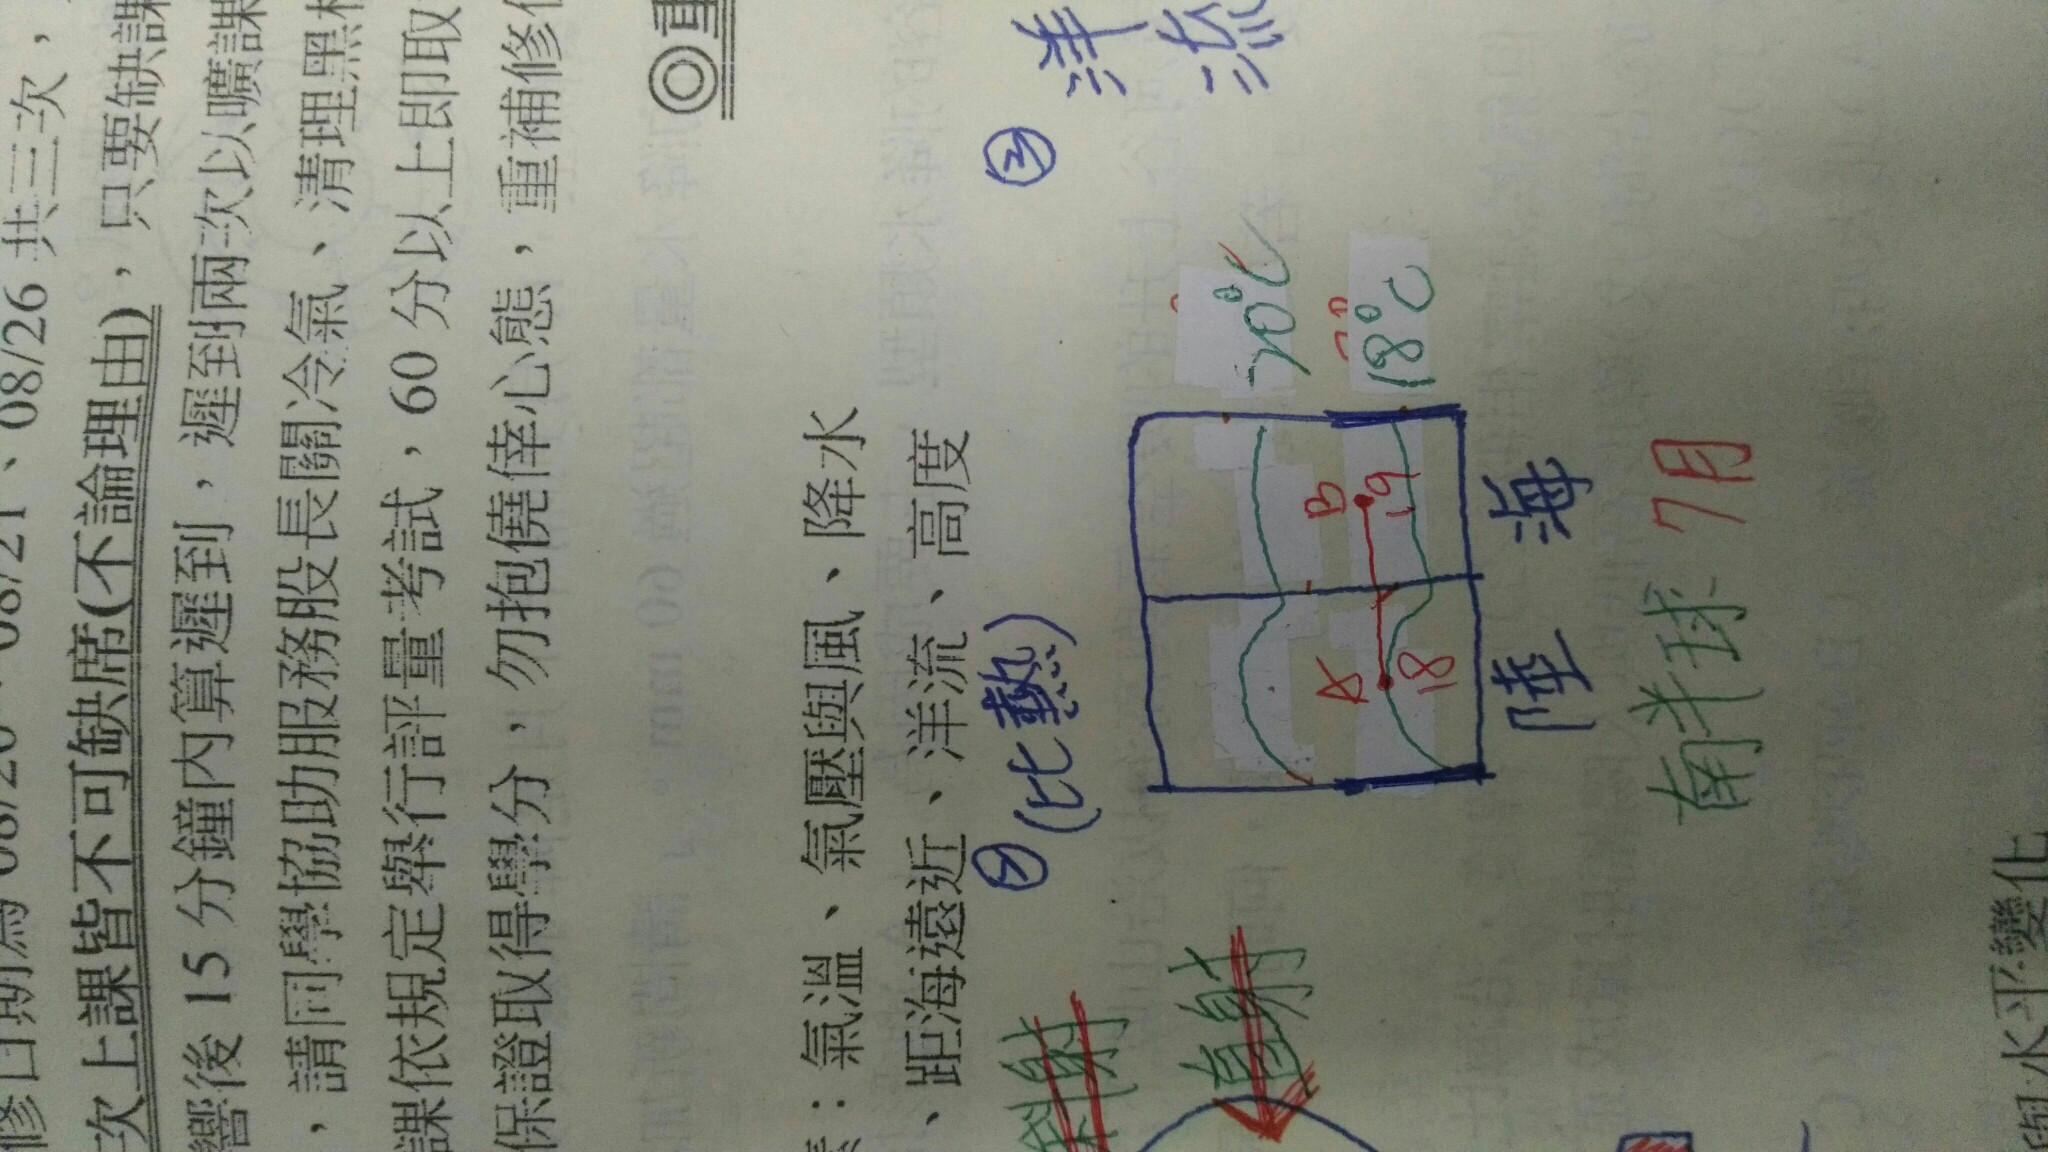 修日期為 08/20、08/21、08/26 共三次，
次上課皆不可缺席(不論理由)，只要缺課
響後 15 分鐘內算遲到，遲到兩次以曠課
，請同學協助服務股長關冷氣、清理黑
課依規定舉行評量考試，60 分以上即取
保證取得學分，勿抱僥倖心態，重補修
◎重
：氣溫、氣壓與風、降水
、距海遠近、洋流、高度
斜射
直射
②(比熱)
20°C
A B
18 19
18°C
陸 海
南半球 7月
③ 洋
流
與水平變化